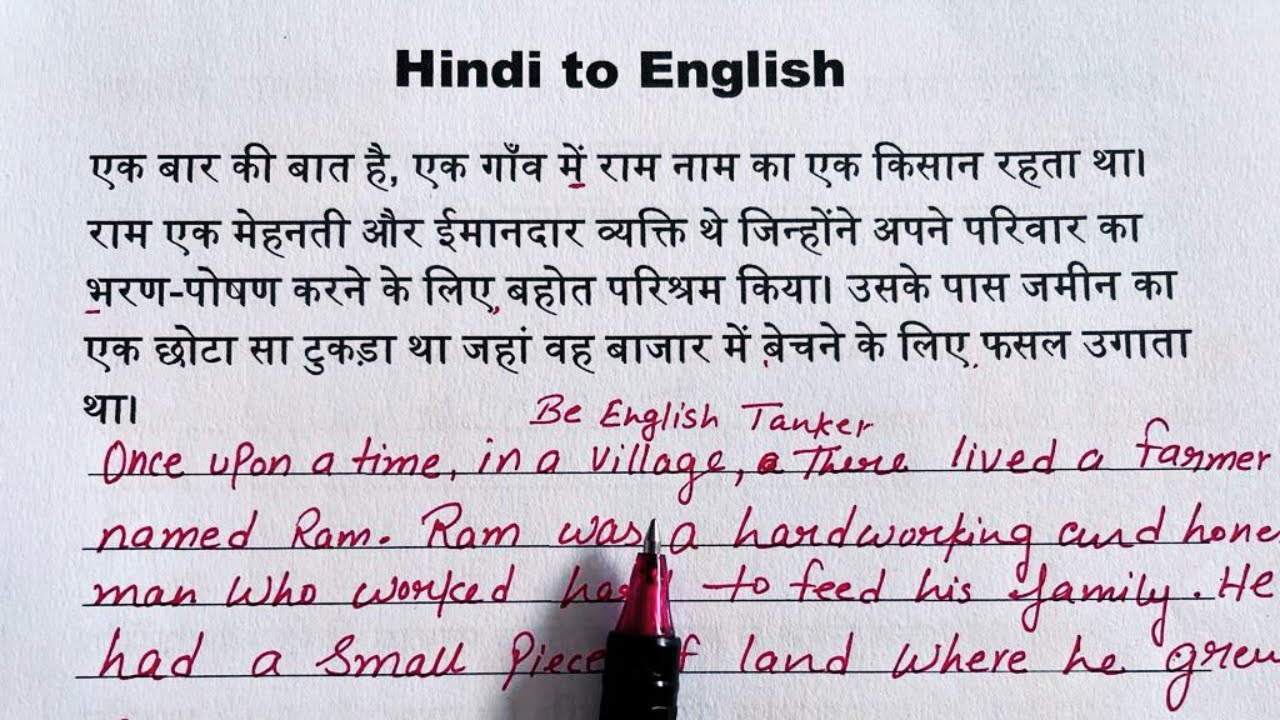 Hindi to English
एक बार की बात है, एक गाँव में राम नाम का एक किसान रहता था।
राम एक मेहनती और ईमानदार व्यक्ति थे जिन्होंने अपने परिवार का
भरण-पोषण करने के लिए बहोत परिश्रम किया। उसके पास जमीन का
एक छोटा सा टुकड़ा था जहां वह बाजार में बेचने के लिए फसल उगाता
था।
Be English Tanker
Once upon a time, in a village, There lived a farmer
named Ram. Ram was a hardworking and hone
man who worked to feed his family. He
had a small piece land where he grew